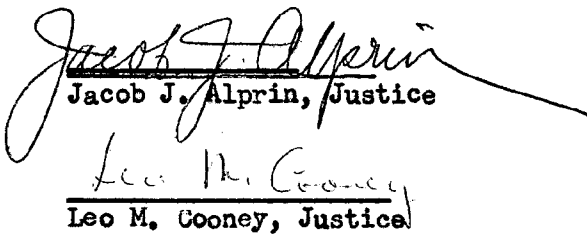 Jacob J. Alprin
Jacob J. Alprin, Justice
Leo M. Cooney
Leo M. Cooney, Justice